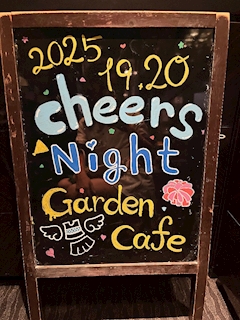 2025
19,20
cheers
Night
Garden
Cafe